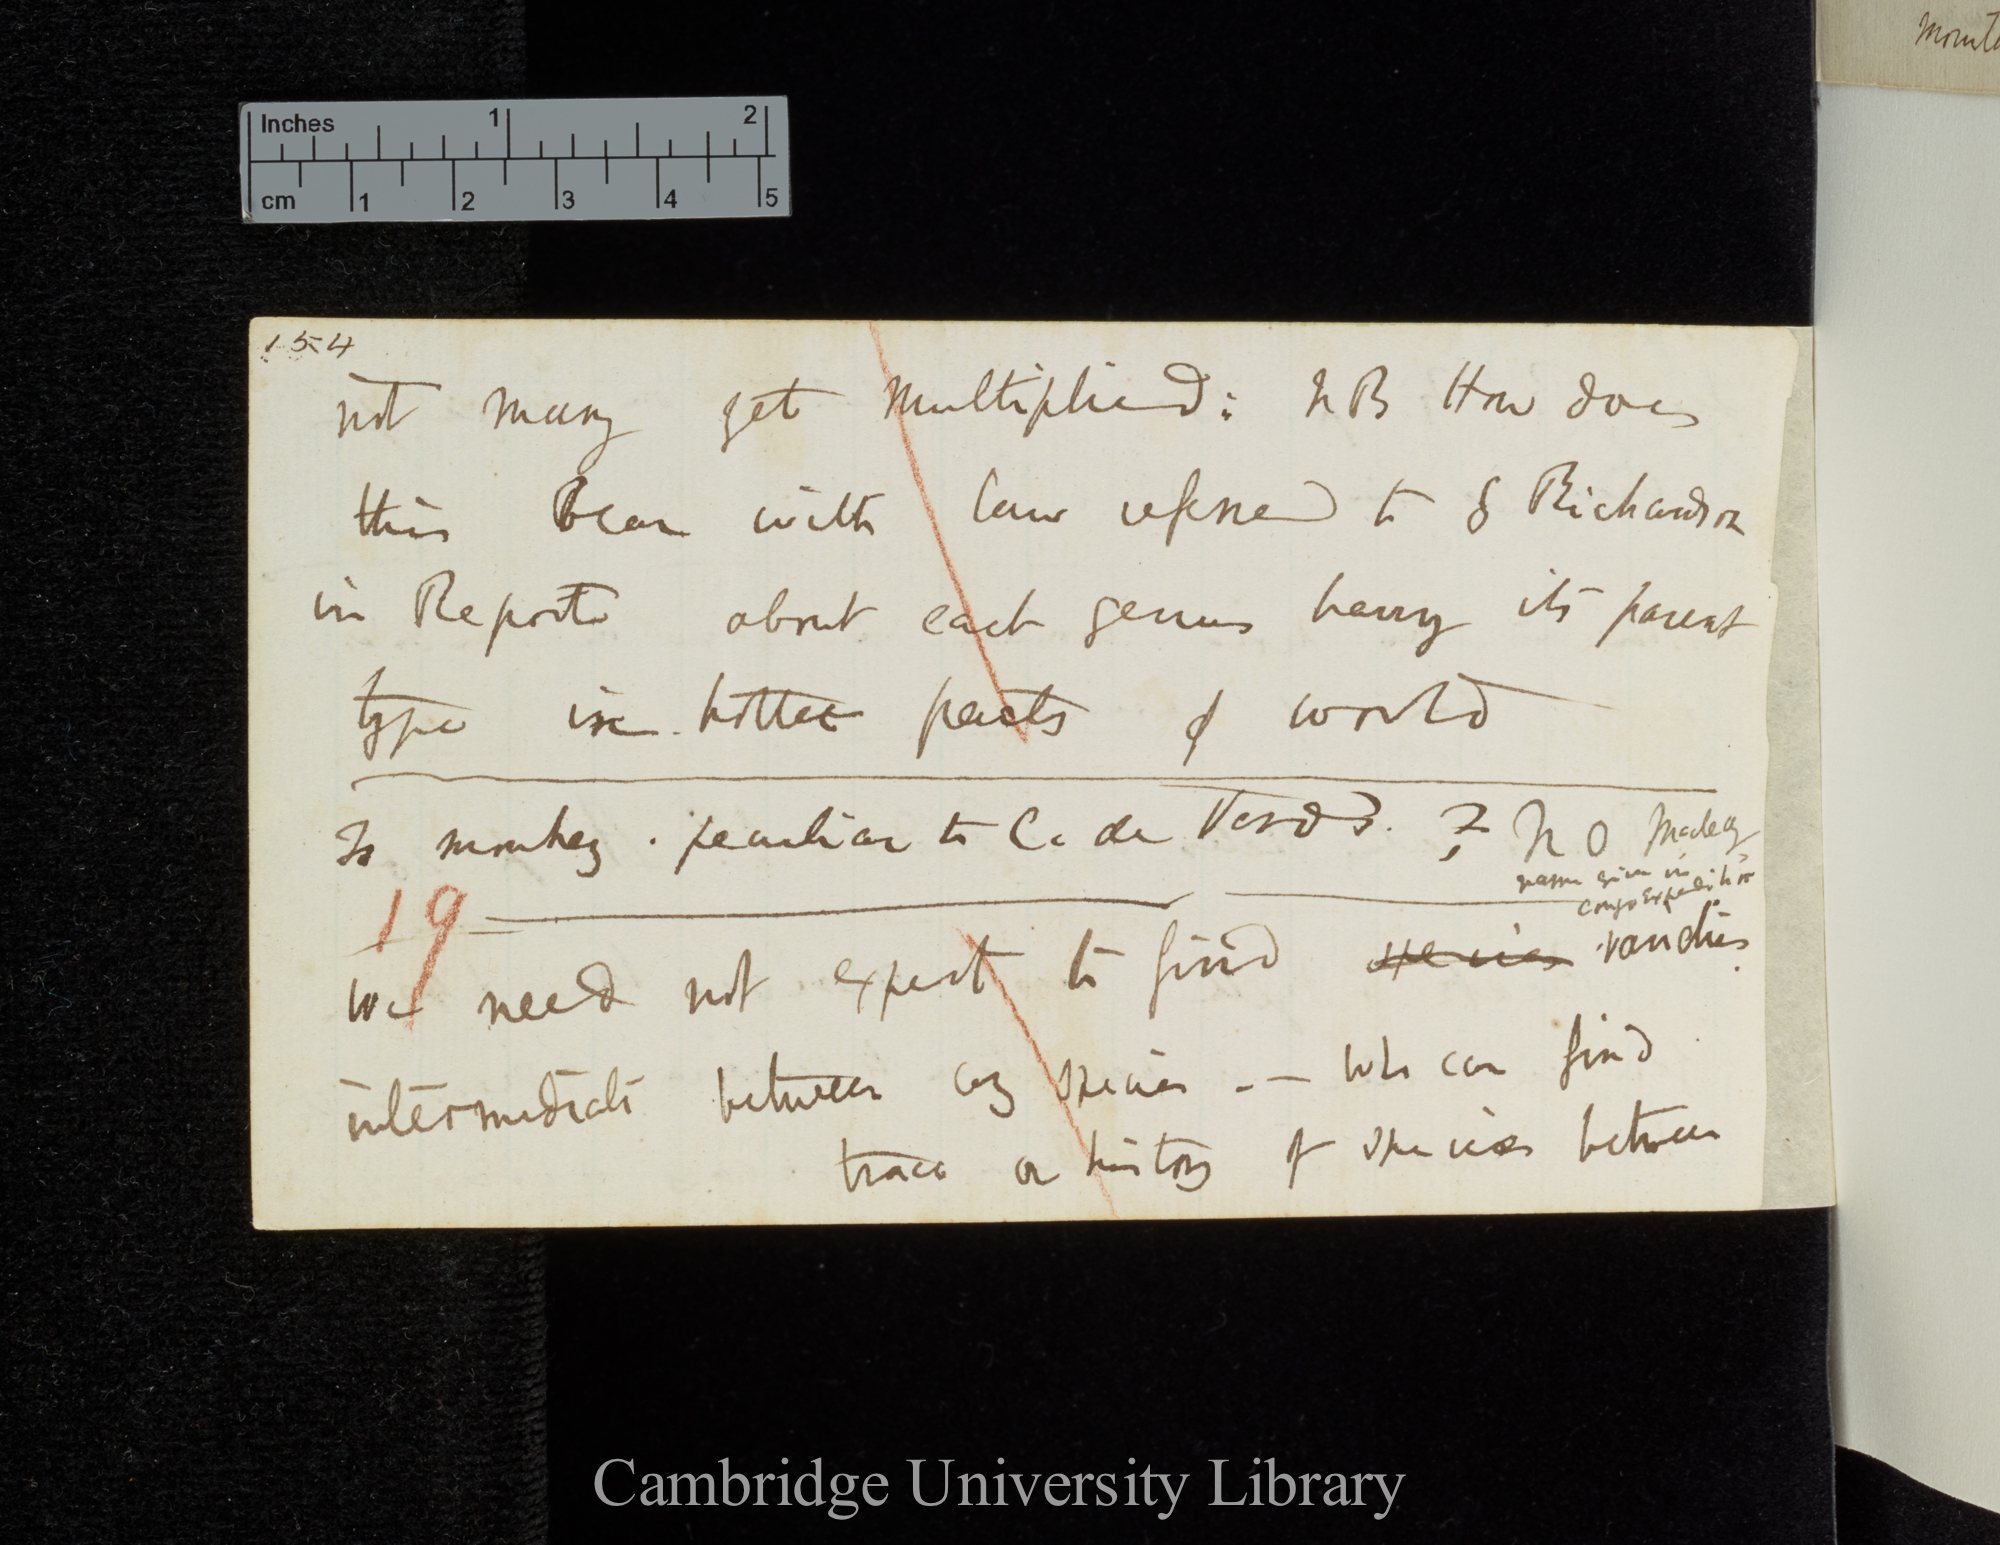 Inches 1 2
cm 1 2 3 4 5
154
not many get multiplied: NB How does
this bear with law referred to by Richardson
in Report about each genus having its parent
type in hotter parts of world
Is monkey. peculiar to C. de Verd's. ? NO Macleay
name given in
Congo Expedition
19
We need not expect to find species varieties
intermediate between every species. — Who can find
trace or history of species between
Cambridge University Library